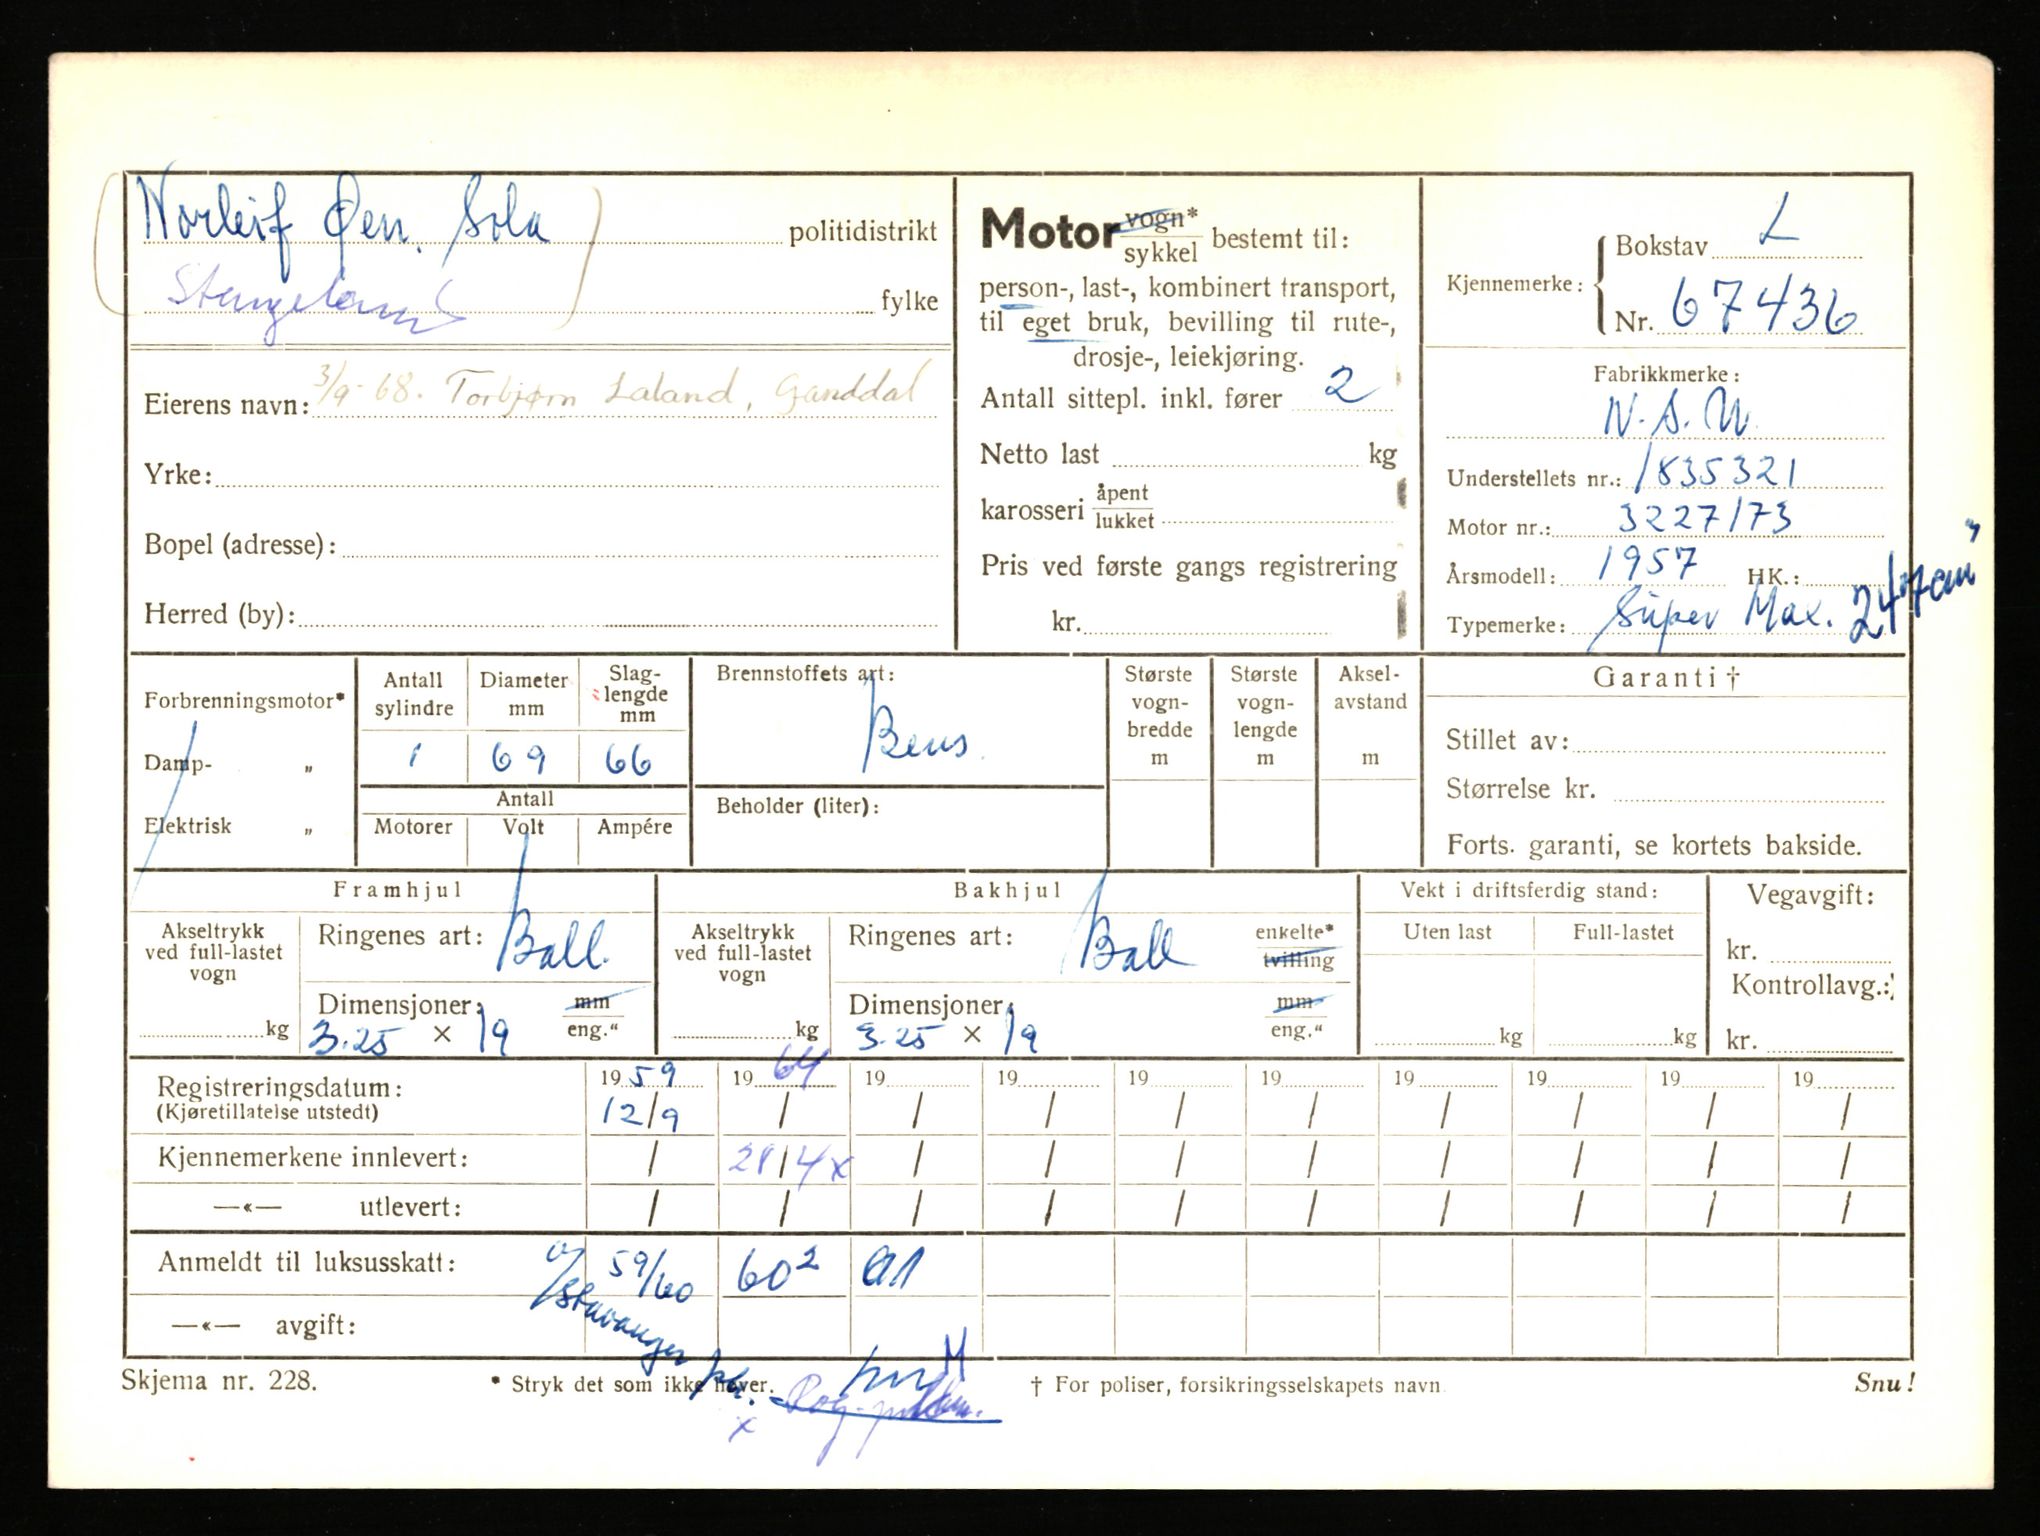 Norleif Øen. Sola politidistrikt
Stangeland fylke
Eierens navn: 3/9-68. Torbjørn Laland, Ganddal
Yrke:
Bopel (adresse):
Herred (by):
Motor vogn* sykkel bestemt til:
person-, last-, kombinert transport,
til eget bruk, bevilling til rute-,
drosje-, leiekjøring.
Antall sittepl. inkl. fører 2
Netto last kg
karosseri åpent lukket
Pris ved første gangs registrering
kr.
Kjennemerke: Bokstav L
Nr. 67436
Fabrikkmerke:
N.S.U.
Understellets nr.: 1835321
Motor nr.: 3227173
Årsmodell: 1957 HK.:
Typemerke: Super Max. 247 cm³
Forbrenningsmotor*
Damp- „
Elektrisk „
Antall sylindre
Diameter mm
Slag-lengde mm
1 69 66
Antall
Motorer Volt Ampére
Brennstoffets art:
Bens.
Beholder (liter):
Største vogn-bredde m
Største vogn-lengde m
Aksel-avstand m
Garanti †
Stillet av:
Størrelse kr.
Forts. garanti, se kortets bakside.
Framhjul
Akseltrykk ved full-lastet vogn
kg
Ringenes art: Ball.
Dimensjoner: mm
3.25 × 19 eng.“
Bakhjul
Akseltrykk ved full-lastet vogn
kg
Ringenes art: Ball enkelte* tvilling
Dimensjoner: mm
3.25 × 19 eng.“
Vekt i driftsferdig stand:
Uten last Full-lastet
kg kg
Vegavgift:
kr.
Kontrollavg.:
kr.
Registreringsdatum: 19 59 19 64 19 19 19 19 19 19 19 19
(Kjøretillatelse utstedt) 12/9 / / / / / / / / /
Kjennemerkene innlevert: / 28/4 x / / / / / / / /
—«— utlevert: / / / / / / / / / /
Anmeldt til luksusskatt: 59/60 60² a1
—«— avgift:
Stavanger pk.
Skjema nr. 228.
* Stryk det som ikke høver.
† For poliser, forsikringsselskapets navn
Snu!
x